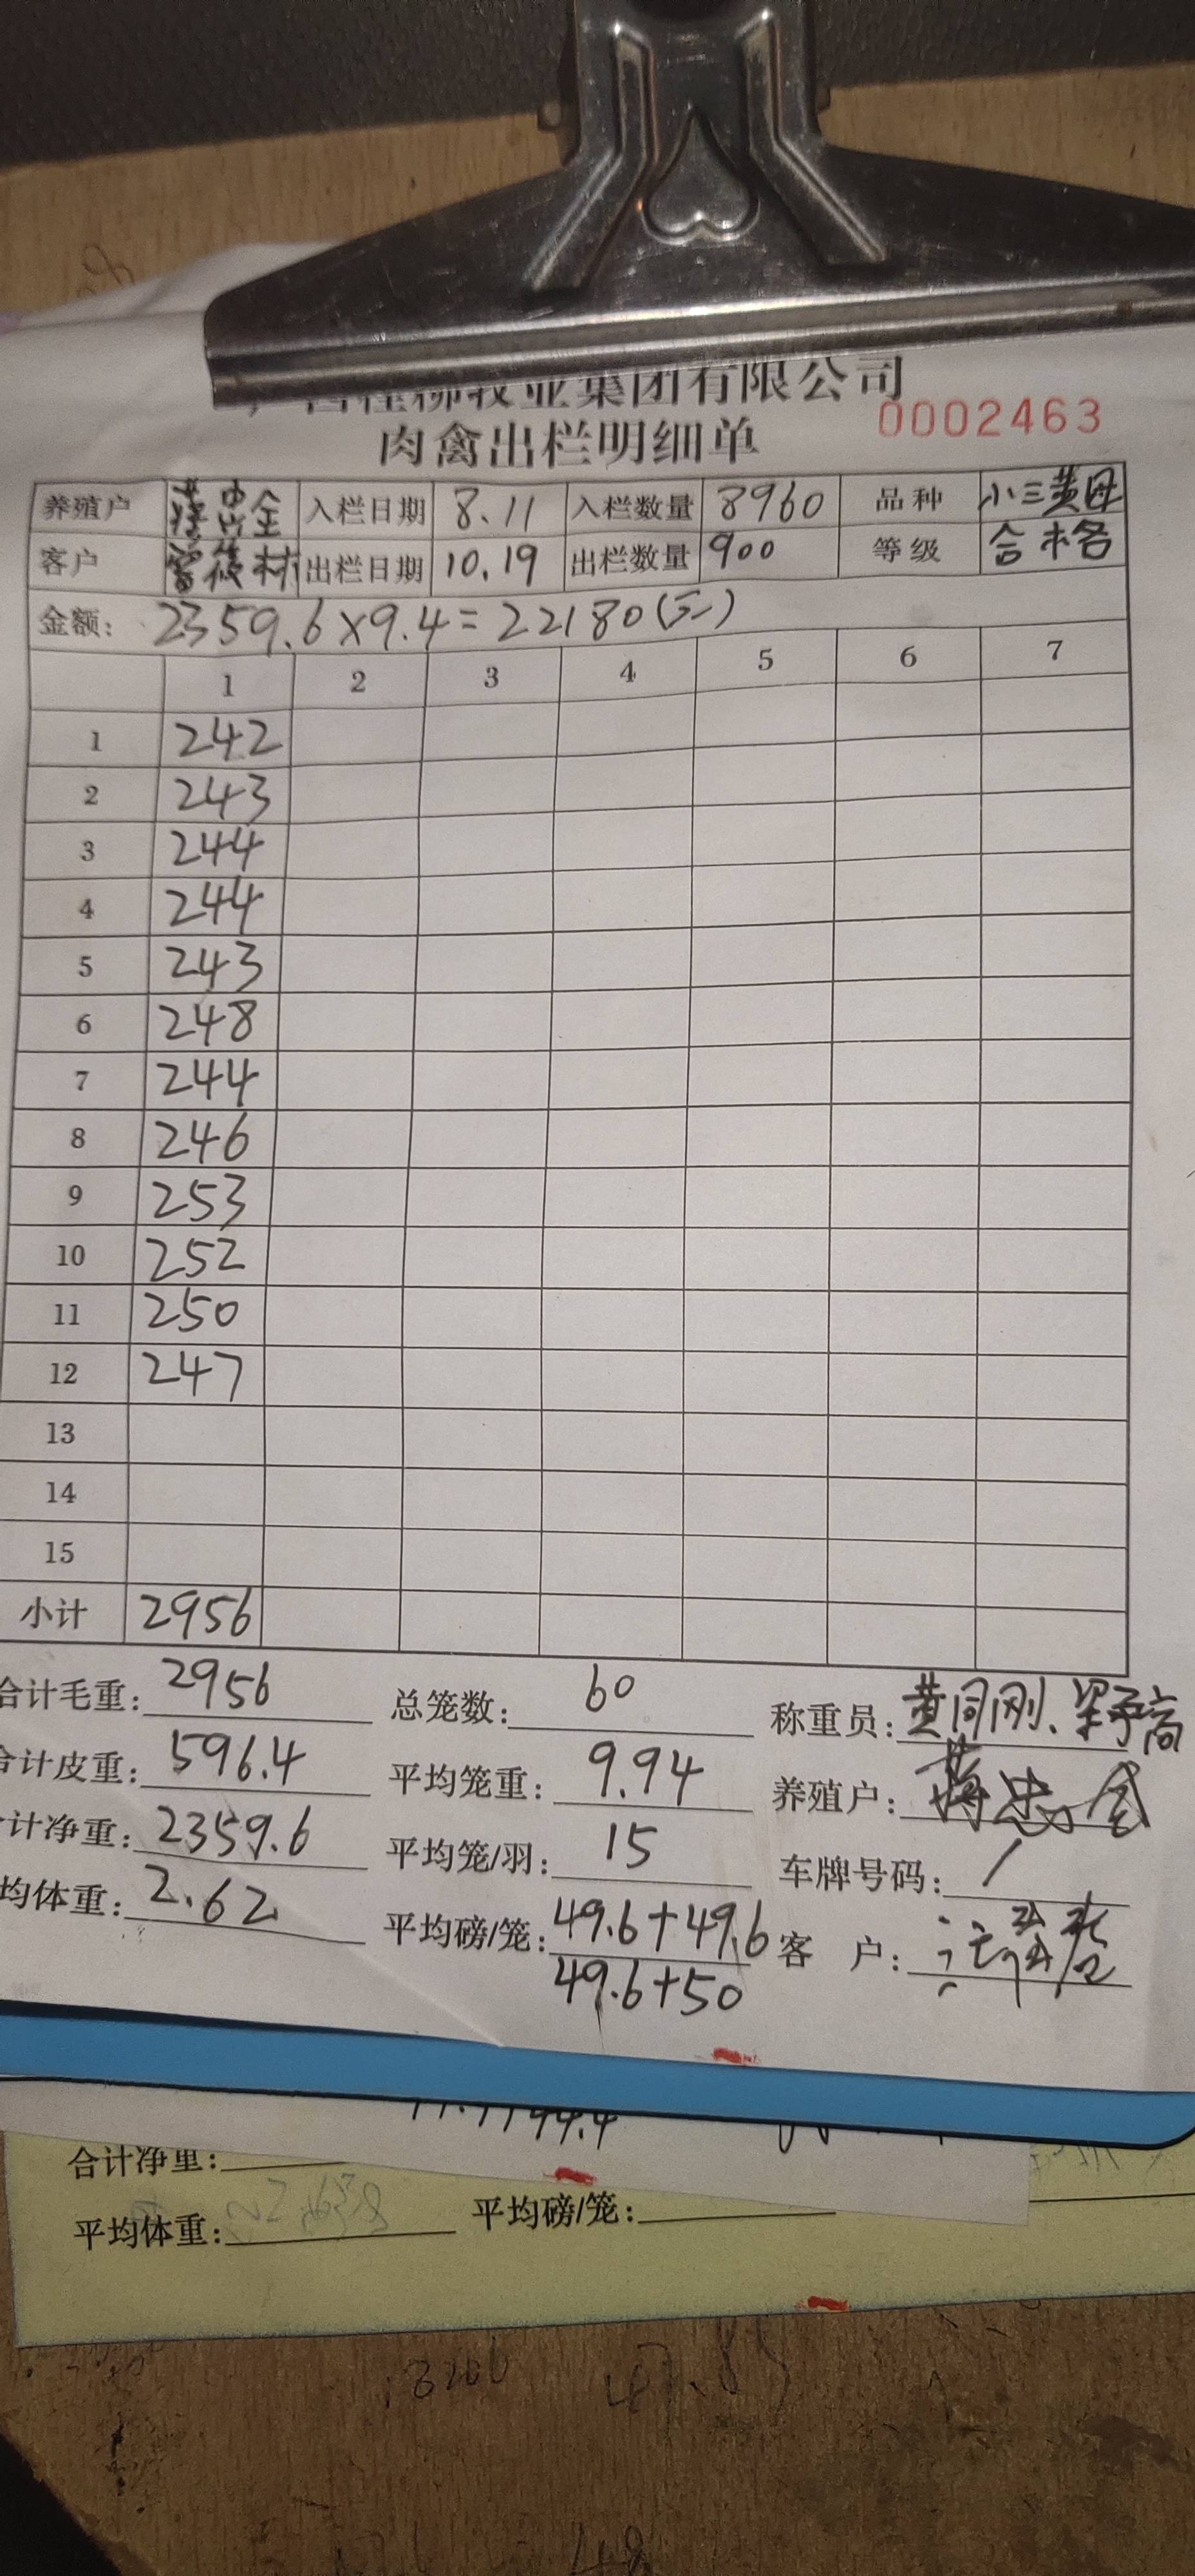 牧业集团有限公司
肉禽出栏明细单 0002463
养殖户 入栏日期 8.11 入栏数量 8960 品种 小三黄母
客户 出栏日期 10.19 出栏数量 900 等级 合格
金额: 2359.6×9.4=22180(元)
1 2 3 4 5 6 7
1 242
2 243
3 244
4 244
5 243
6 248
7 244
8 246
9 253
10 252
11 250
12 247
13
14
15
小计 2956
合计毛重: 2956 总笼数: 60 称重员: 黄同刚、
合计皮重: 596.4 平均笼重: 9.94 养殖户: 蒋忠金
计净重: 2359.6 平均笼/羽: 15 车牌号码: /
均体重: 2.62 平均磅/笼: 49.6+49.6 客 户:
49.6+50
合计净重:
平均体重: 平均磅/笼: